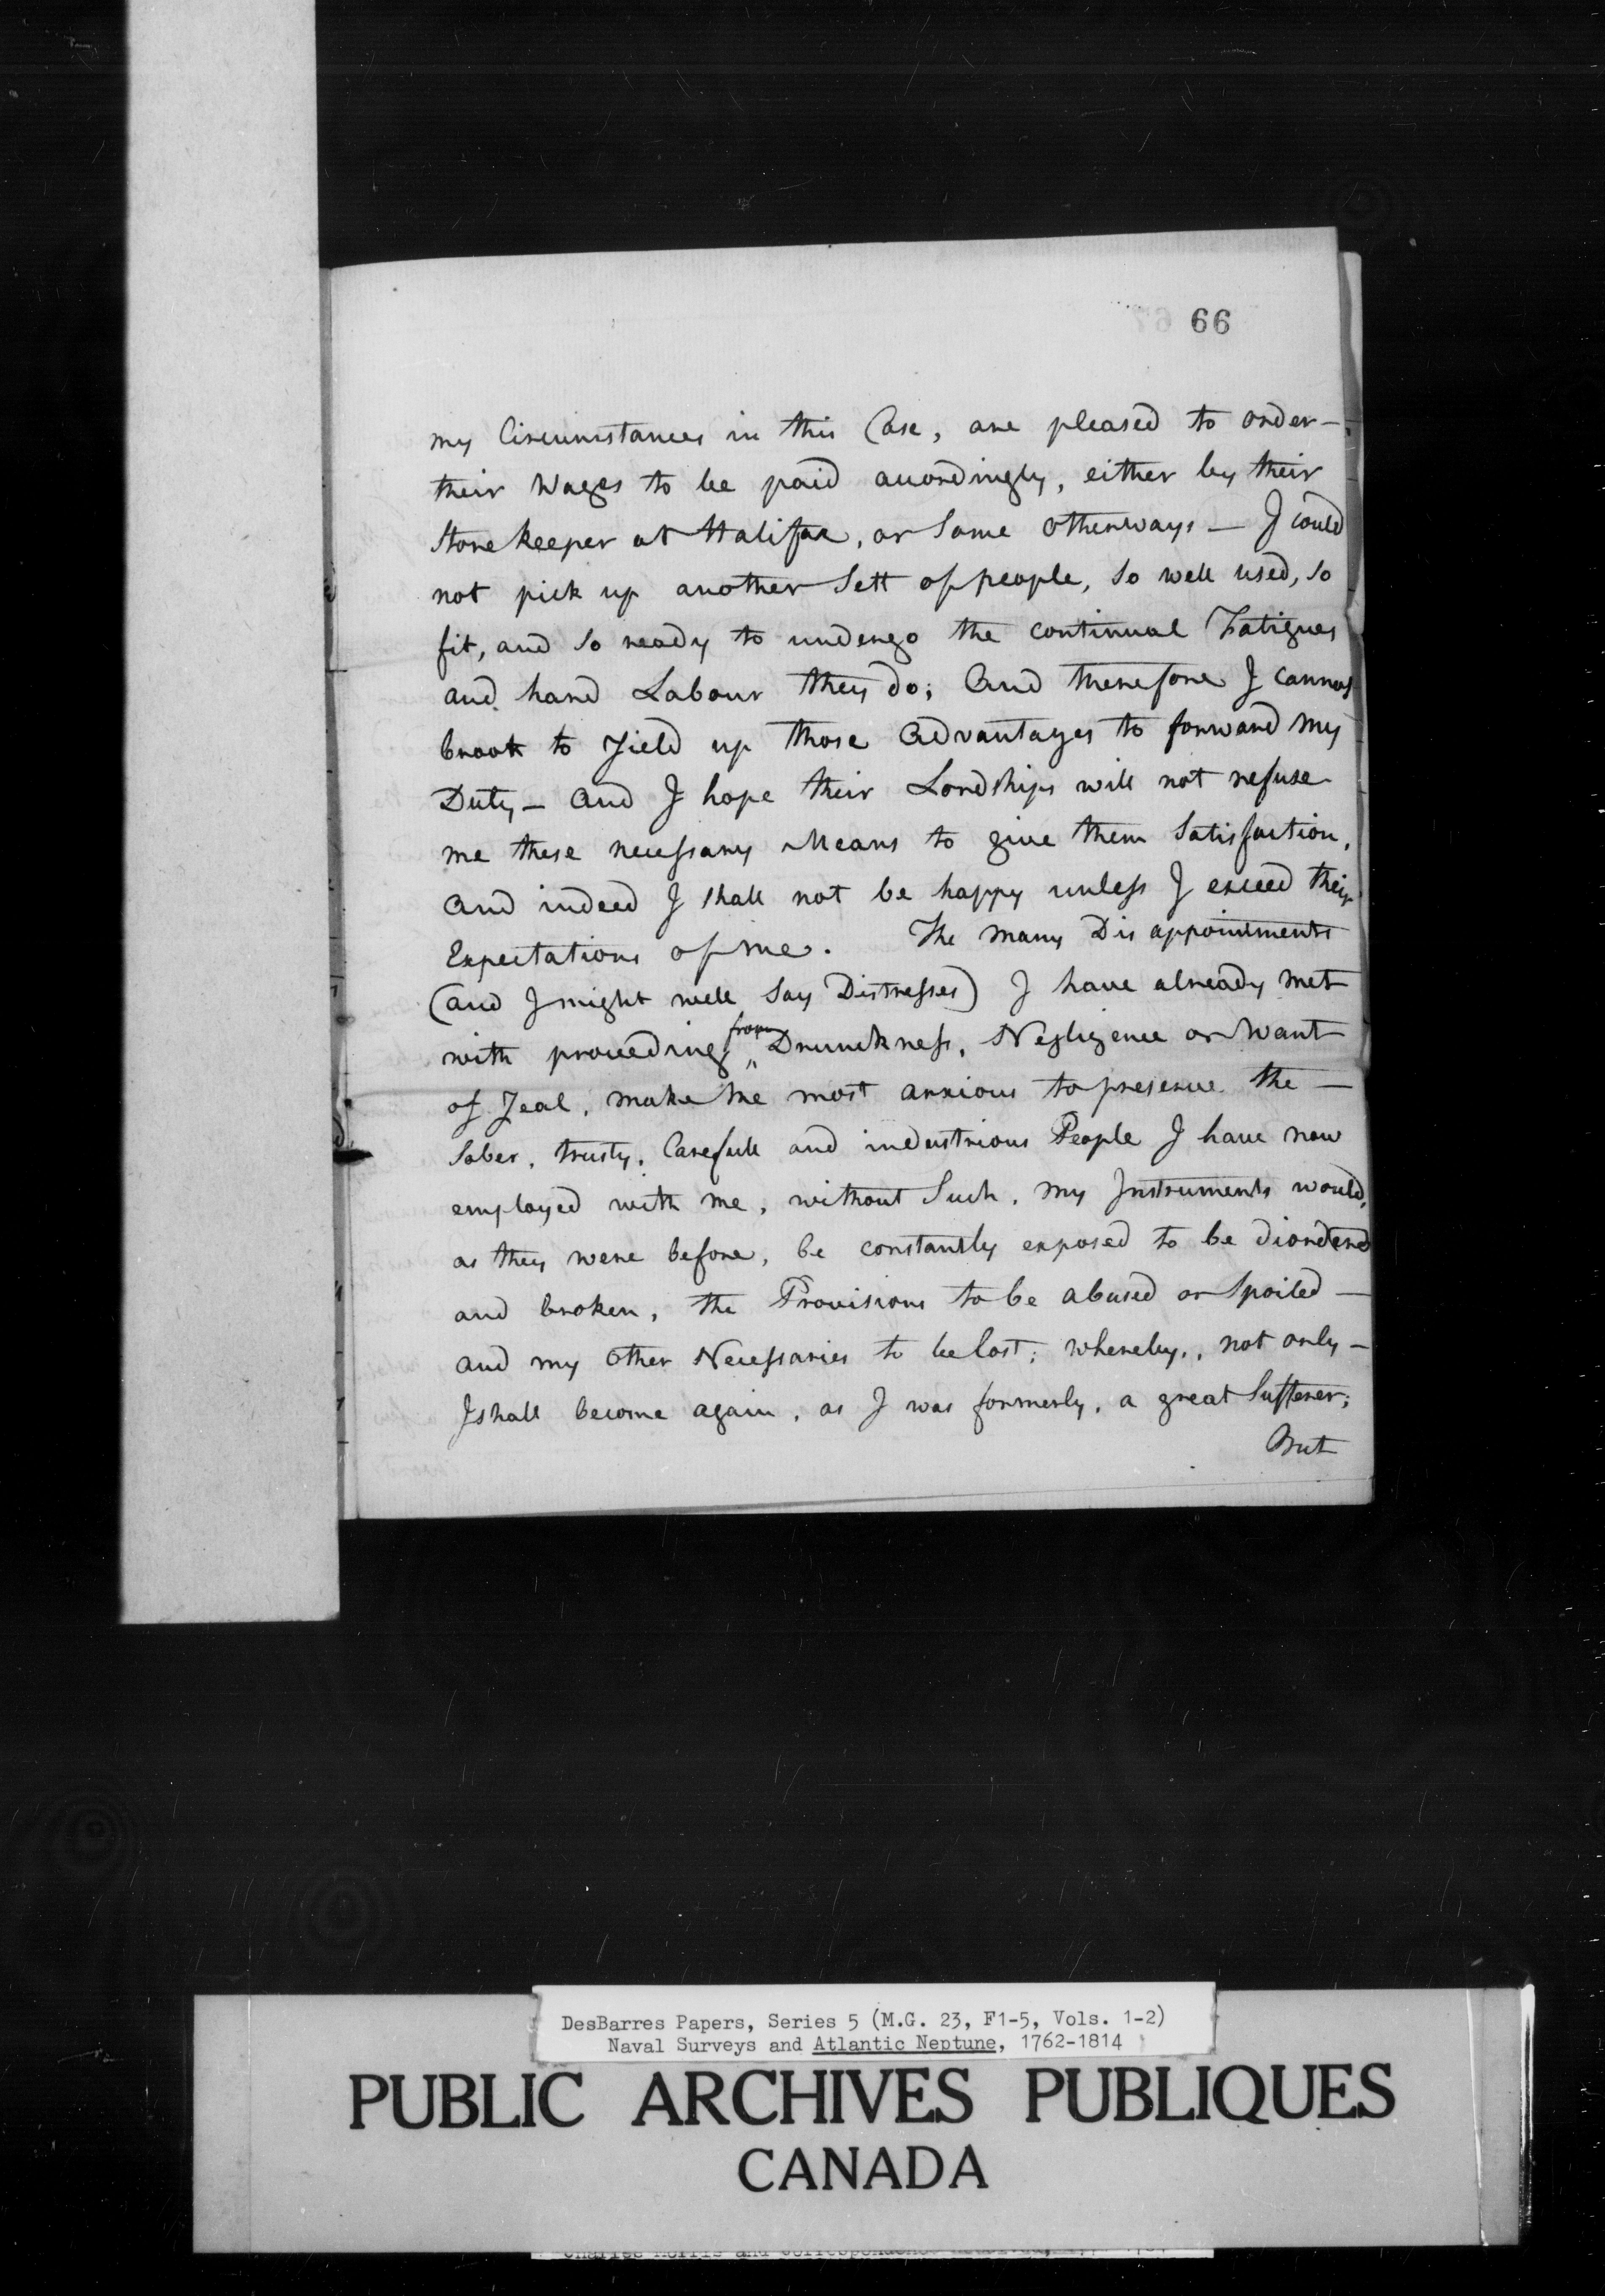 66
my Circumstances in this Case, are pleased to order —
their Wages to be paid accordingly, either by their
Storekeeper at Halifax, or Some otherways — I could
not pick up another Sett of people, So well used, So
fit, and So ready to undergo the continual Fatigues
and hard Labour they do; And therefore I cannot
brook to Yield up those Advantages to forward my
Duty — And I hope their Lordships will not refuse
me these necessary Means to give them Satisfaction,
And indeed I shall not be happy unless I exceed their
Expectations of me. The many Disappointments
(and I might well Say Distresses) I have already met
with proceeding from Drunckness, Negligence or Want
of Zeal, make me most anxious to preserve the —
Sober, trusty, Carefull and industrious People I have now
employed with me, without Such, my Instruments would,
as they were before, be constantly exposed to be disordered
and broken, the Provisions to be abused or Spoiled —
and my other Necessaries to be lost; whereby, not only —
I shall become again, as I was formerly, a great Sufferer;
But
DesBarres Papers, Series 5 (M.G. 23, F1-5, Vols. 1-2)
Naval Surveys and Atlantic Neptune, 1762-1814
PUBLIC ARCHIVES PUBLIQUES
CANADA